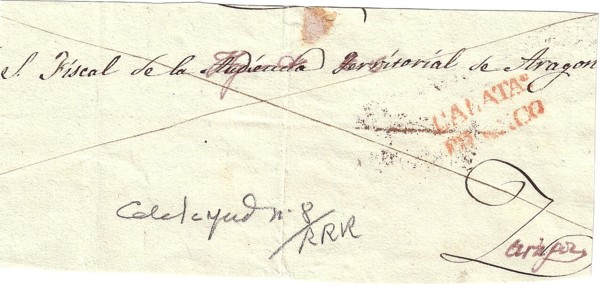 S. Fiscal de la Audiencia Territorial de Aragon
CALATAD
Calatayud n. 8
RRR
Zaragoza